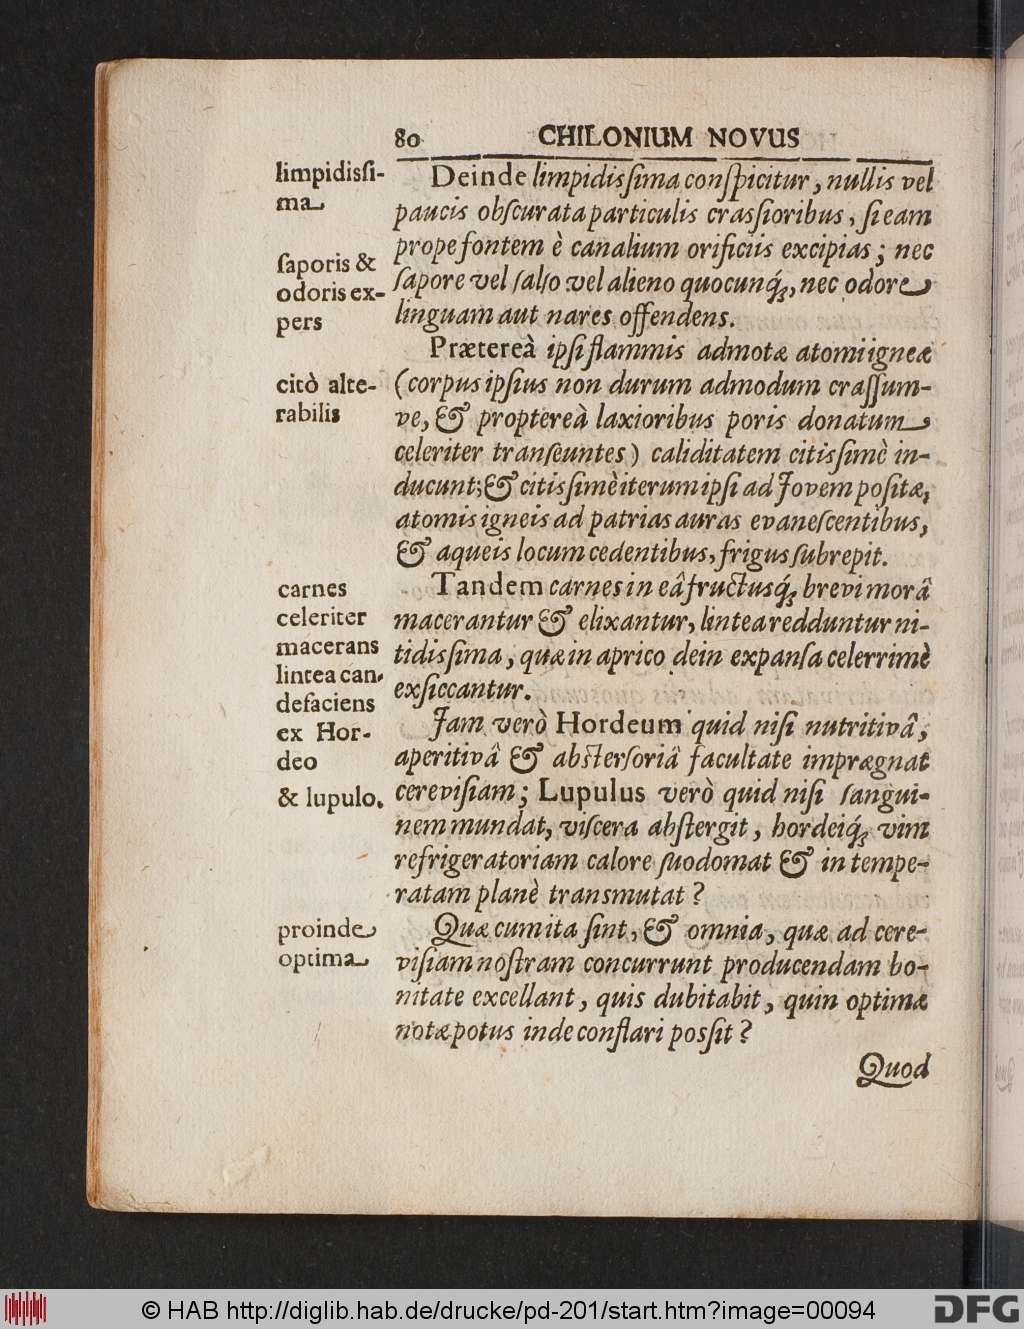 80 CHILONIUM NOVUS
limpidisſi-
ma
ſaporis &
odoris ex-
pers
citò alte-
rabilis
carnes
celeriter
macerans
lintea can-
defaciens
ex Hor-
deo
& lupulo.
proinde
optima
Deinde limpidisſima conſpicitur, nullis vel
paucis obſcurata particulis crasſioribus, ſi eam
prope fontem è canalium orificiis excipias; nec
ſapore vel ſalſo vel alieno quocunq́;, nec odore
linguam aut nares offendens.
Prætereà ipſi flammis admotæ atomi igneæ
(corpus ipſius non durum admodum craſſum-
ve, & proptereà laxioribus poris donatum
celeriter tranſeuntes) caliditatem citisſimè in-
ducunt; & citisſimè iterum ipſi ad Jovem poſitæ,
atomis igneis ad patrias auras evaneſcentibus,
& aqueis locum cedentibus, frigus ſubrepit.
Tandem carnes in eâ fructusq́; brevi morâ
macerantur & elixantur, lintea redduntur ni-
tidisſima, quæ in aprico dein expanſa celerrimè
exſiccantur.
Jam verò Hordeum quid niſi nutritivâ,
aperitivâ & abſterſoriâ facultate imprægnat
cereviſiam; Lupulus verò quid niſi ſangui-
nem mundat, viſcera abſtergit, hordeiq́; vim
refrigeratoriam calore ſuo domat & in tempe-
ratam planè transmutat?
Quæ cum ita ſint, & omnia, quæ ad cere-
viſiam noſtram concurrunt producendam bo-
nitate excellant, quis dubitabit, quin optimæ
notæ potus inde conflari posſit?
Quod
© HAB http://diglib.hab.de/drucke/pd-201/start.htm?image=00094
DFG